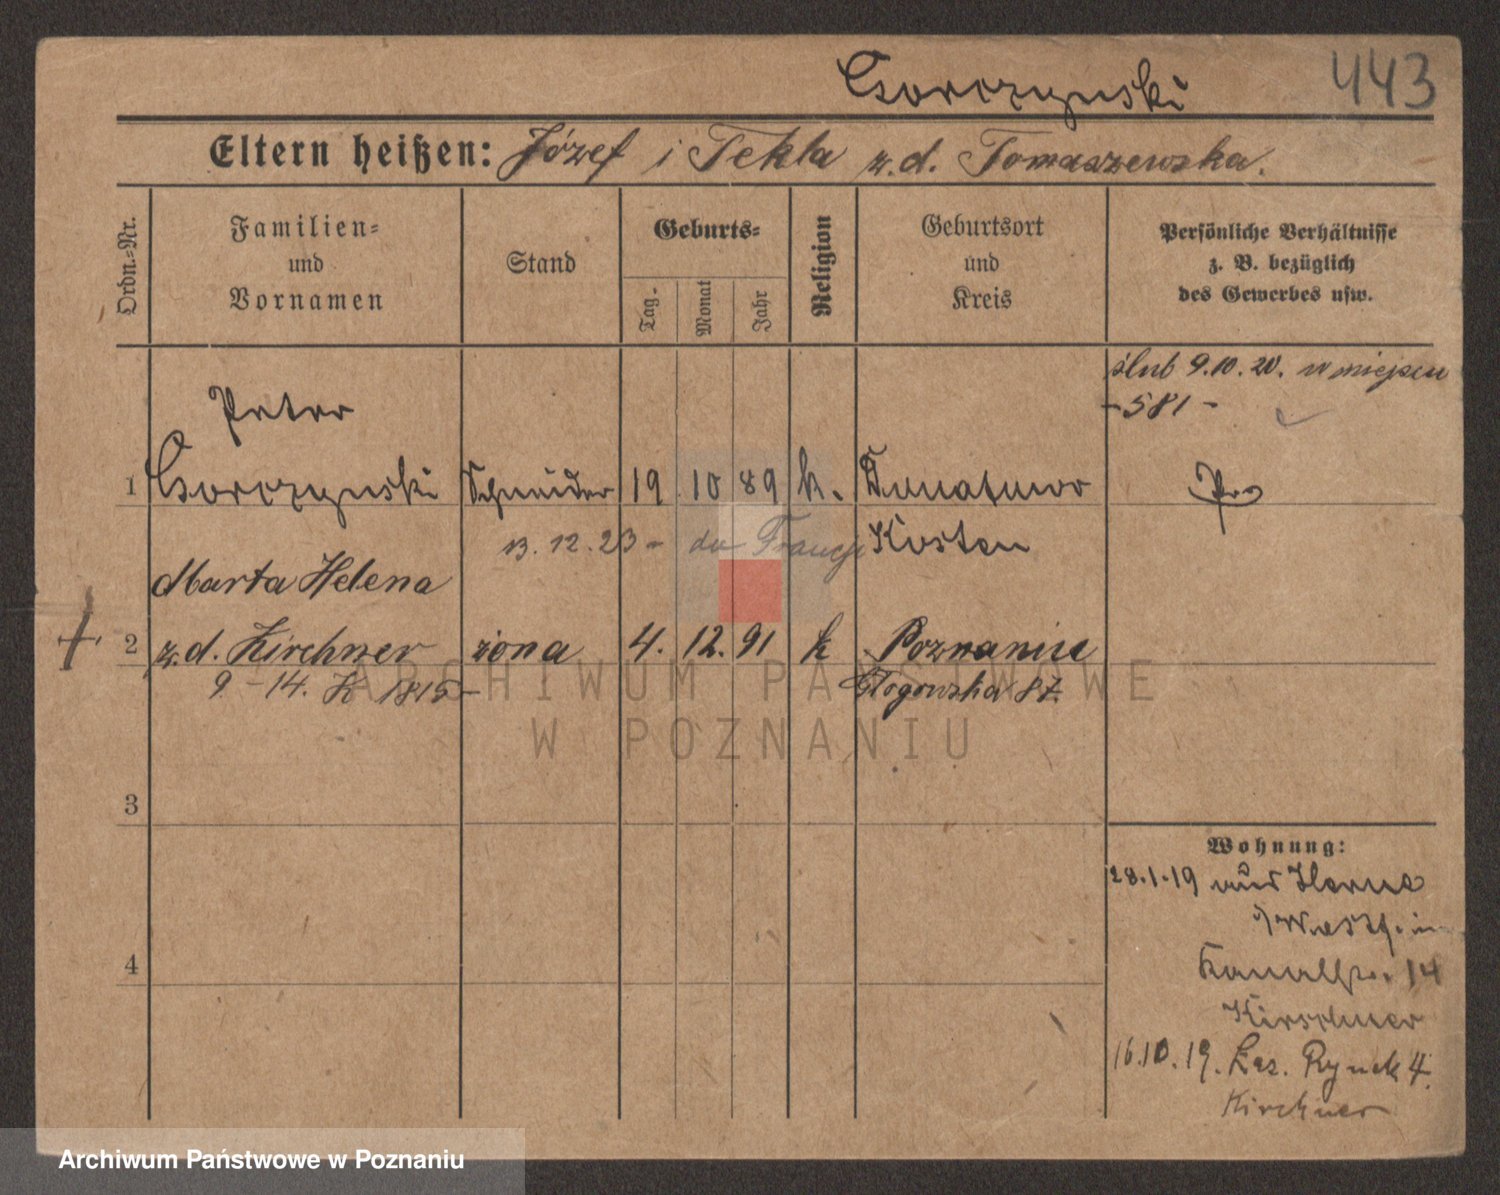 Gorczynski 443
Eltern heißen: Józef i Tekla z.d. Tomaszewska.
Ordn.-Nr.
Familien- und Vornamen
Stand
Geburts-
Tag.
Monat
Jahr
Religion
Geburtsort und Kreis
Persönliche Verhältnisse
z. B. bezüglich
des Gewerbes usw.
ślub 9.10.20. w miejscu
- 581 -
Peter
1 Gorczynski Schneider 19 10 89 k.
Kosten
13.12.23 - do Francji
Marta Helena
2 z.d. Kirchner żona 4. 12. 91 k Poznaniu
9 - 14. K 1815 - Głogowska 87.
3
4
Wohnung:
28.1.19 aus Herne
i/Westf.
Kanalstr. 14
Kirschner
16.10.19. Łaz. Rynek 4.
Kirchner
ARCHIWUM PAŃSTWOWE
W POZNANIU
Archiwum Państwowe w Poznaniu